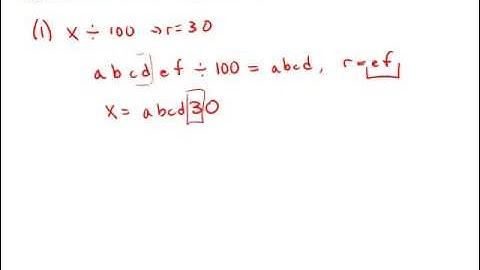 (1) x ÷ 100 → r = 30
abcdef ÷ 100 = abcd, r = ef
x = abcd30